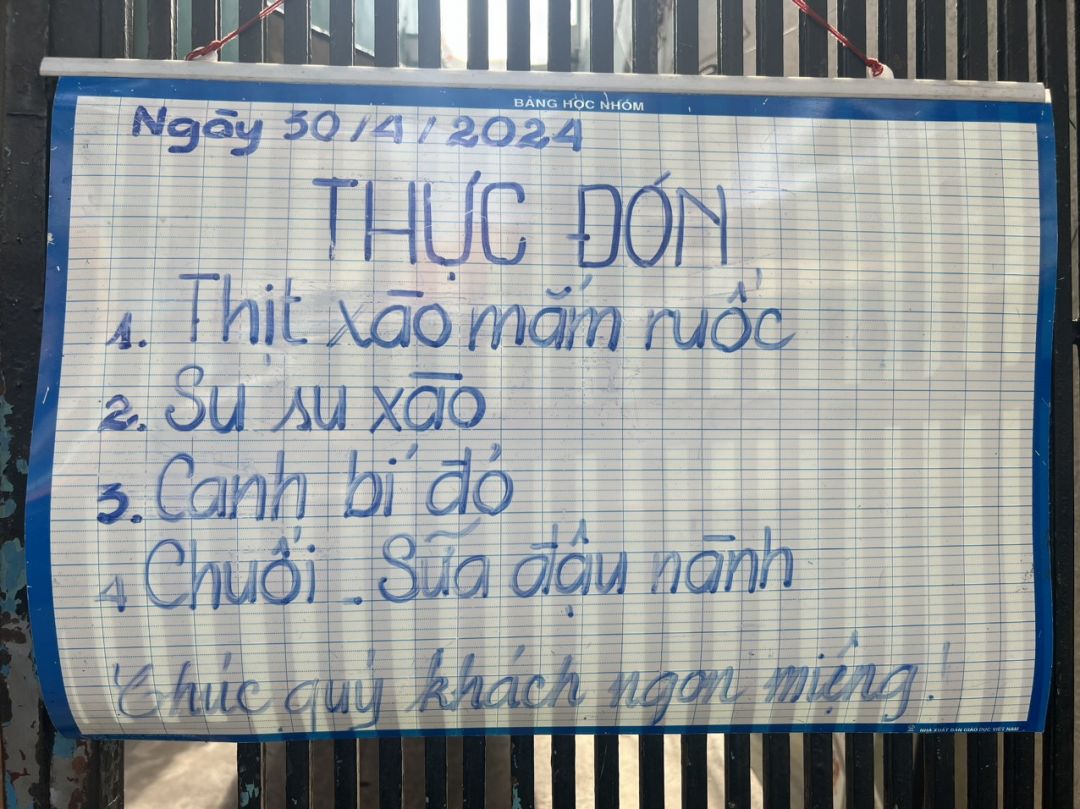 BẢNG HỌC NHÓM
Ngày 30/4/2024
THỰC ĐƠN
1. Thịt xào mắm ruốc
2. Su su xào
3. Canh bí đỏ
4 Chuối. Sữa đậu nành
Chúc quý khách ngon miệng!
NHÀ XUẤT BẢN GIÁO DỤC VIỆT NAM